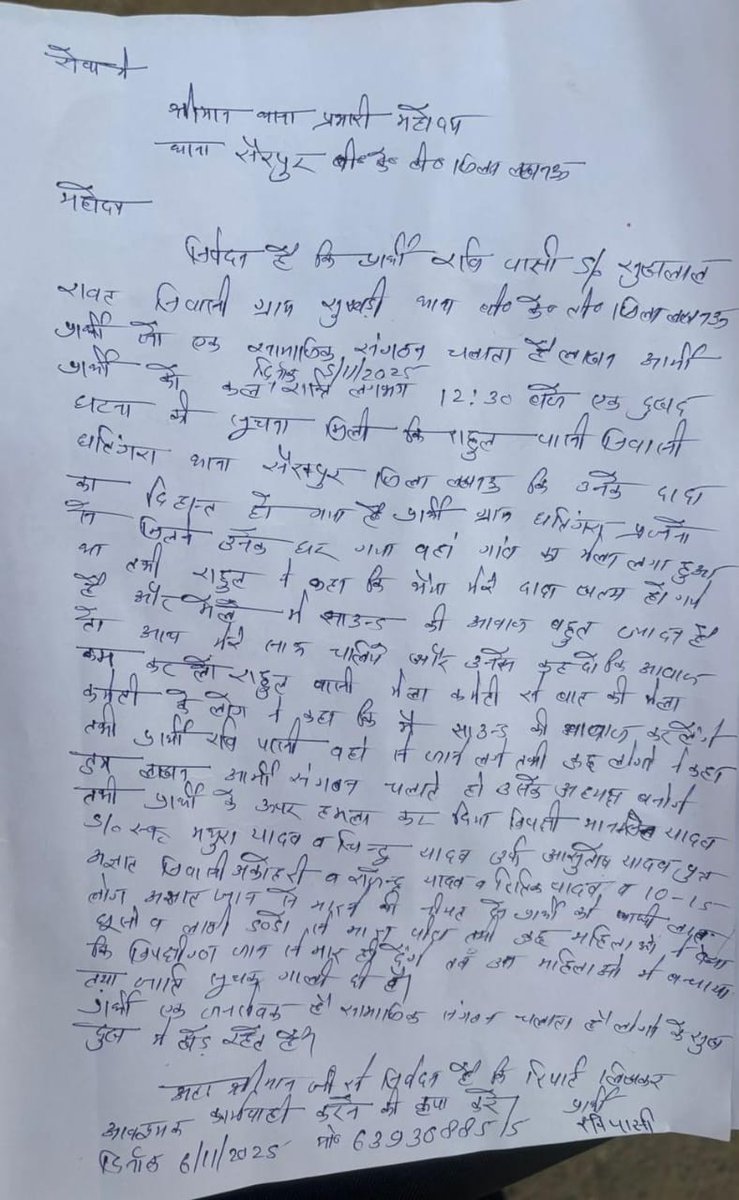 सेवा मे
श्रीमान थाना प्रभारी महोदय
थाना सैरपुर बी॰के॰टी॰ जिला लखनऊ
महोदय
निवेदन है कि प्रार्थी रवि पासी S/o सुखलाल
रावत निवासी ग्राम थाना बी॰के॰टी॰ जिला लखनऊ
प्रार्थी जो एक सामाजिक संगठन चलाता है लाखन आर्मी
दिनांक 5/11/2025
प्रार्थी को कल रात्रि लगभग 12:30 बजे एक दुखद
घटना की सूचना मिली कि राहुल पासी निवासी
थाना सैरपुर जिला लखनऊ कि उनके दादा
का दिहान्त हो गया है प्रार्थी ग्राम
मे मिलने उनके घर गया वहां गांव का मेला लगा हुआ
था तभी राहुल ने कहा कि भैया मेरे दादा खत्म हो गये
है और मेले मे साउन्ड की आवाज बहुत ज्यादा है
आप मेरे साथ चलिये और उनसे कह दो कि आवाज
कम कर लें राहुल पासी मेला कमेटी से बात की मेला
कमेटी के लोग ने कहा कि मै साउन्ड की आवाज कर देंगे
तभी प्रार्थी रवि पासी वहां से जाने लगे तभी कुछ लोगो ने कहा
तुम लाखन आर्मी संगठन चलाते हो उसके अध्यक्ष बनोगे
तभी प्रार्थी के ऊपर हमला कर दिया विपक्षी यादव
S/o स्व॰ मथुरा यादव व यादव उर्फ आशुतोष यादव पुत्र
अज्ञात निवासी व यादव व रितिक यादव व 10-15
लोग अज्ञात जान से मारने की नीयत से प्रार्थी को
घूसो व लाठी डण्डो से मारा पीटा तभी कुछ महिलाओ ने देखा
कि विपक्षीगण जान से मार ही देंगे तब उन महिलाओ ने बचाया
तथा जाति सूचक गाली दी है।
प्रार्थी एक जनसेवक है सामाजिक संगठन चलाता है लोगो के सुख
दुख मे खड़े रहते है।
अतः श्रीमान जी से निवेदन है कि रिपोर्ट लिखकर
आवश्यक कार्यवाही करने की कृपा करें
प्रार्थी
रवि पासी
दिनांक 6/11/2025 मो॰